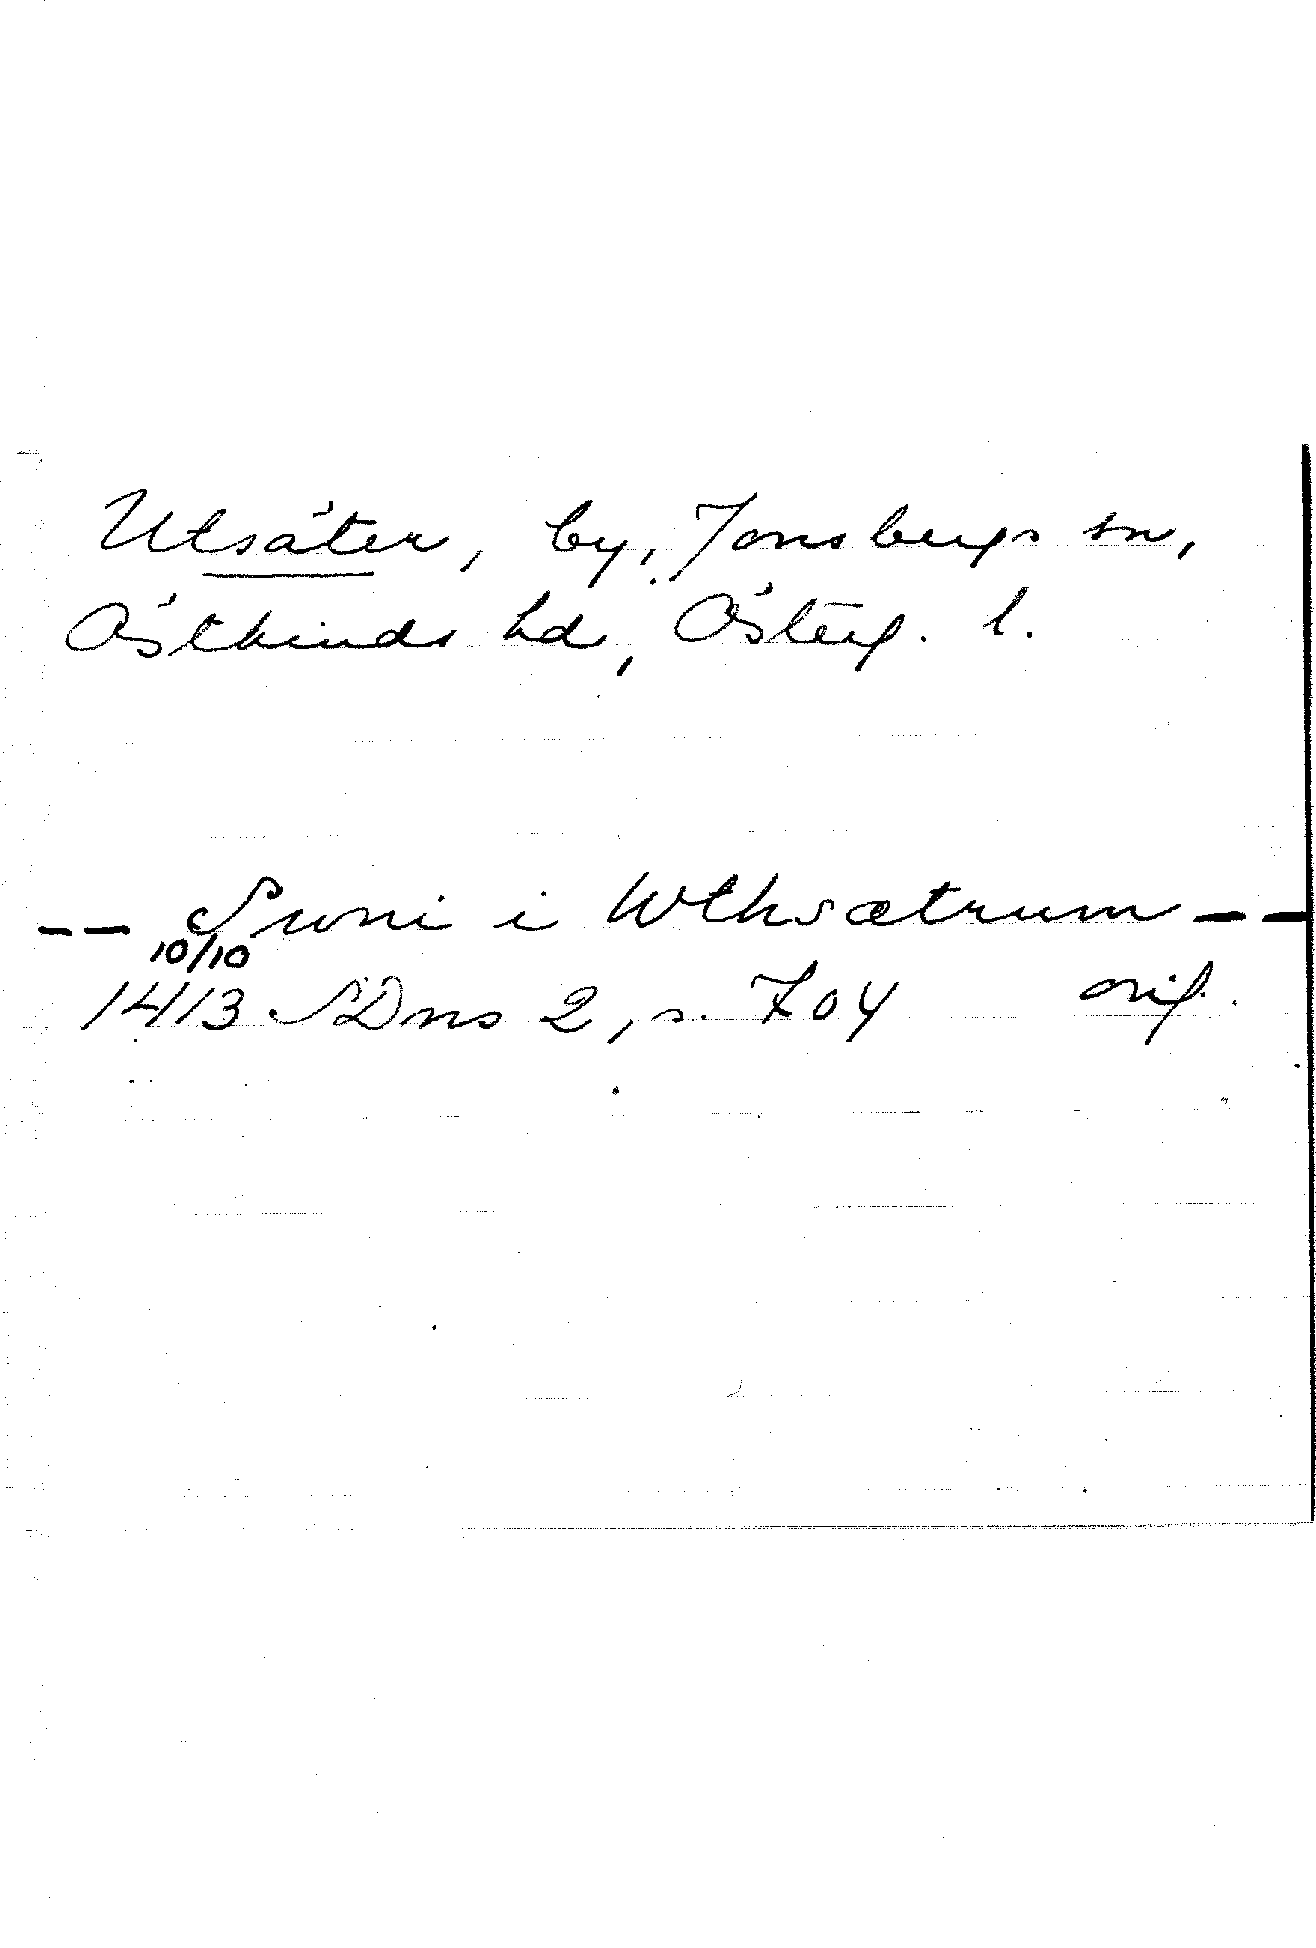 Ulsäter, by, Jonsbergs sn,
Östkinds hd, Österg. l.
-- Suni i Wlhsætrum --
10/10
1413 SDns 2, s. 704 orig.